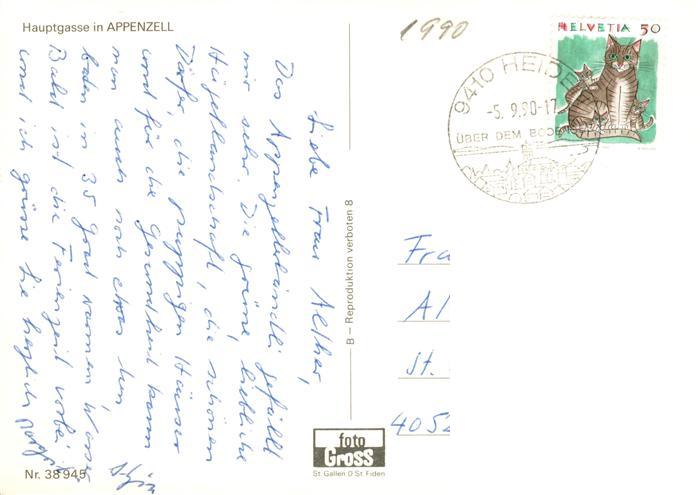 Hauptgasse in APPENZELL
1990
HELVETIA 50
9410 HEIDEN
-5. 9.90-17
ÜBER DEM BODENSEE
Liebe Frau Alther,
Das Appenzellerländli gefällt
mir sehr. Die grüne, liebliche
Hügellandschaft, die schönen
Dörfer, die puppigen Häuser
und für die Gesundheit kann
man auch noch etwas tun,
baden in 35 Grad warmem Wasser
Bald ist die Ferienzeit vorbei
und ich grüsse Sie herzlich
B – Reproduktion verboten 8
Fra
Al
St.
4052
foto
Gross
St. Gallen O St. Fiden
Nr. 38 945